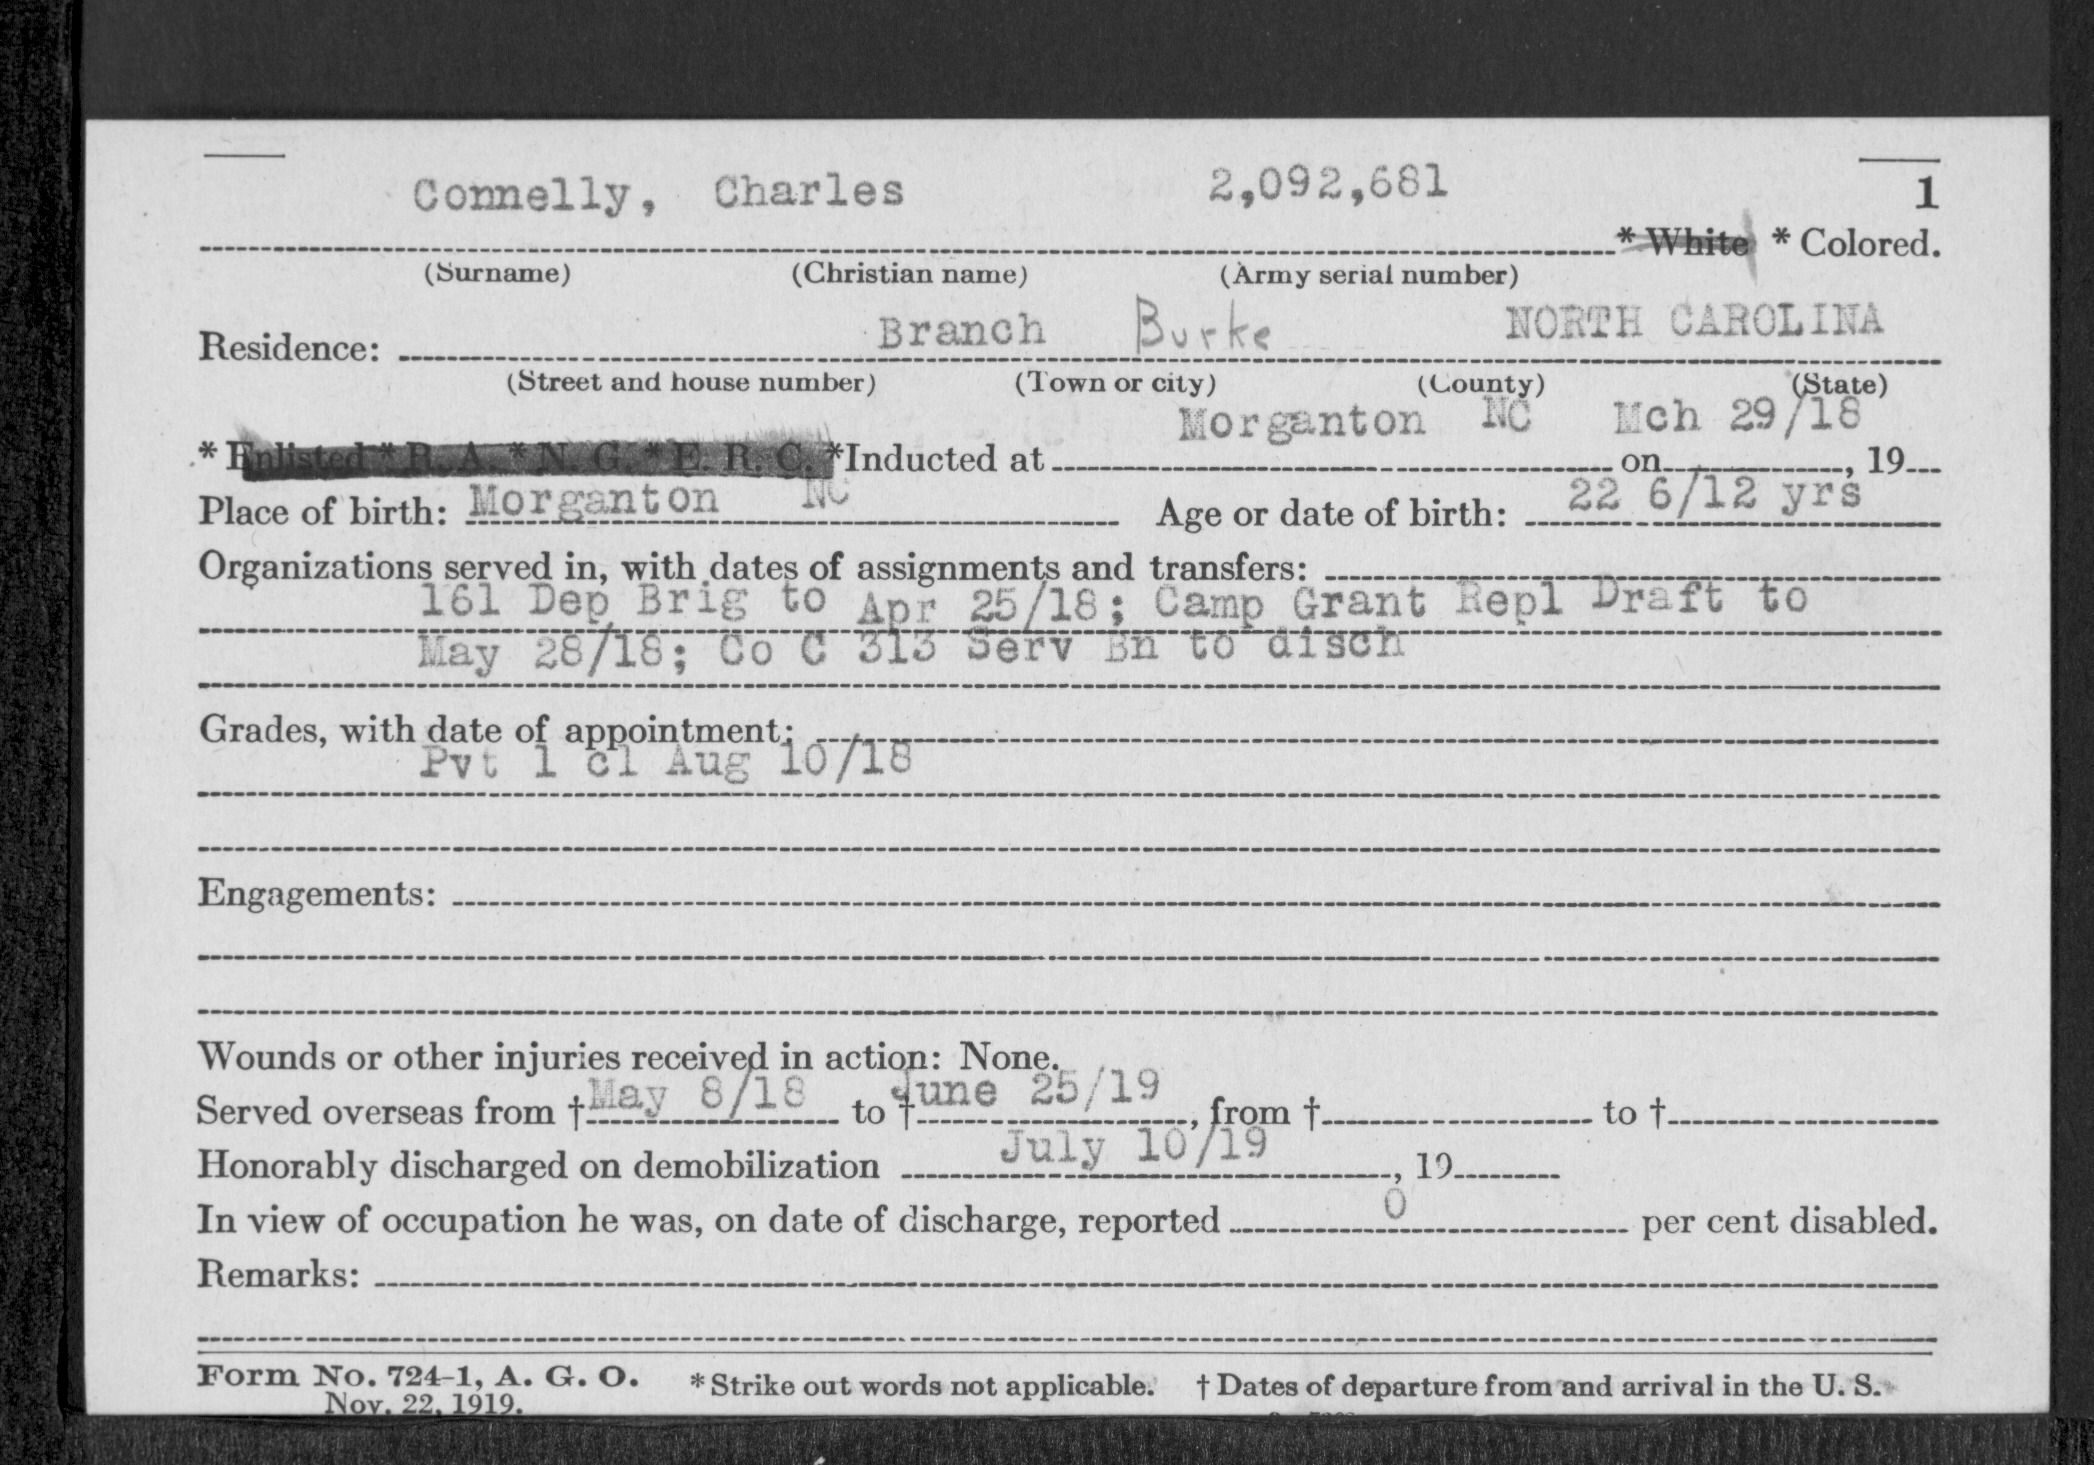 Connelly, Charles 2,092,681 1
* White * Colored.
(Surname) (Christian name) (Army serial number)
Residence: Branch Burke NORTH CAROLINA
(Street and house number) (Town or city) (County) (State)
* Enlisted * R. A. * N. G. * E. R. C. *Inducted at Morganton NC on Mch 29/18, 19
Place of birth: Morganton NC Age or date of birth: 22 6/12 yrs
Organizations served in, with dates of assignments and transfers:
161 Dep Brig to Apr 25/18; Camp Grant Repl Draft to
May 28/18; Co C 313 Serv Bn to disch
Grades, with date of appointment:
Pvt 1 cl Aug 10/18
Engagements:
Wounds or other injuries received in action: None.
Served overseas from † May 8/18 to † June 25/19, from † to †
Honorably discharged on demobilization July 10/19, 19
In view of occupation he was, on date of discharge, reported 0 per cent disabled.
Remarks:
Form No. 724-1, A. G. O. * Strike out words not applicable. † Dates of departure from and arrival in the U. S.
Nov. 22, 1919.